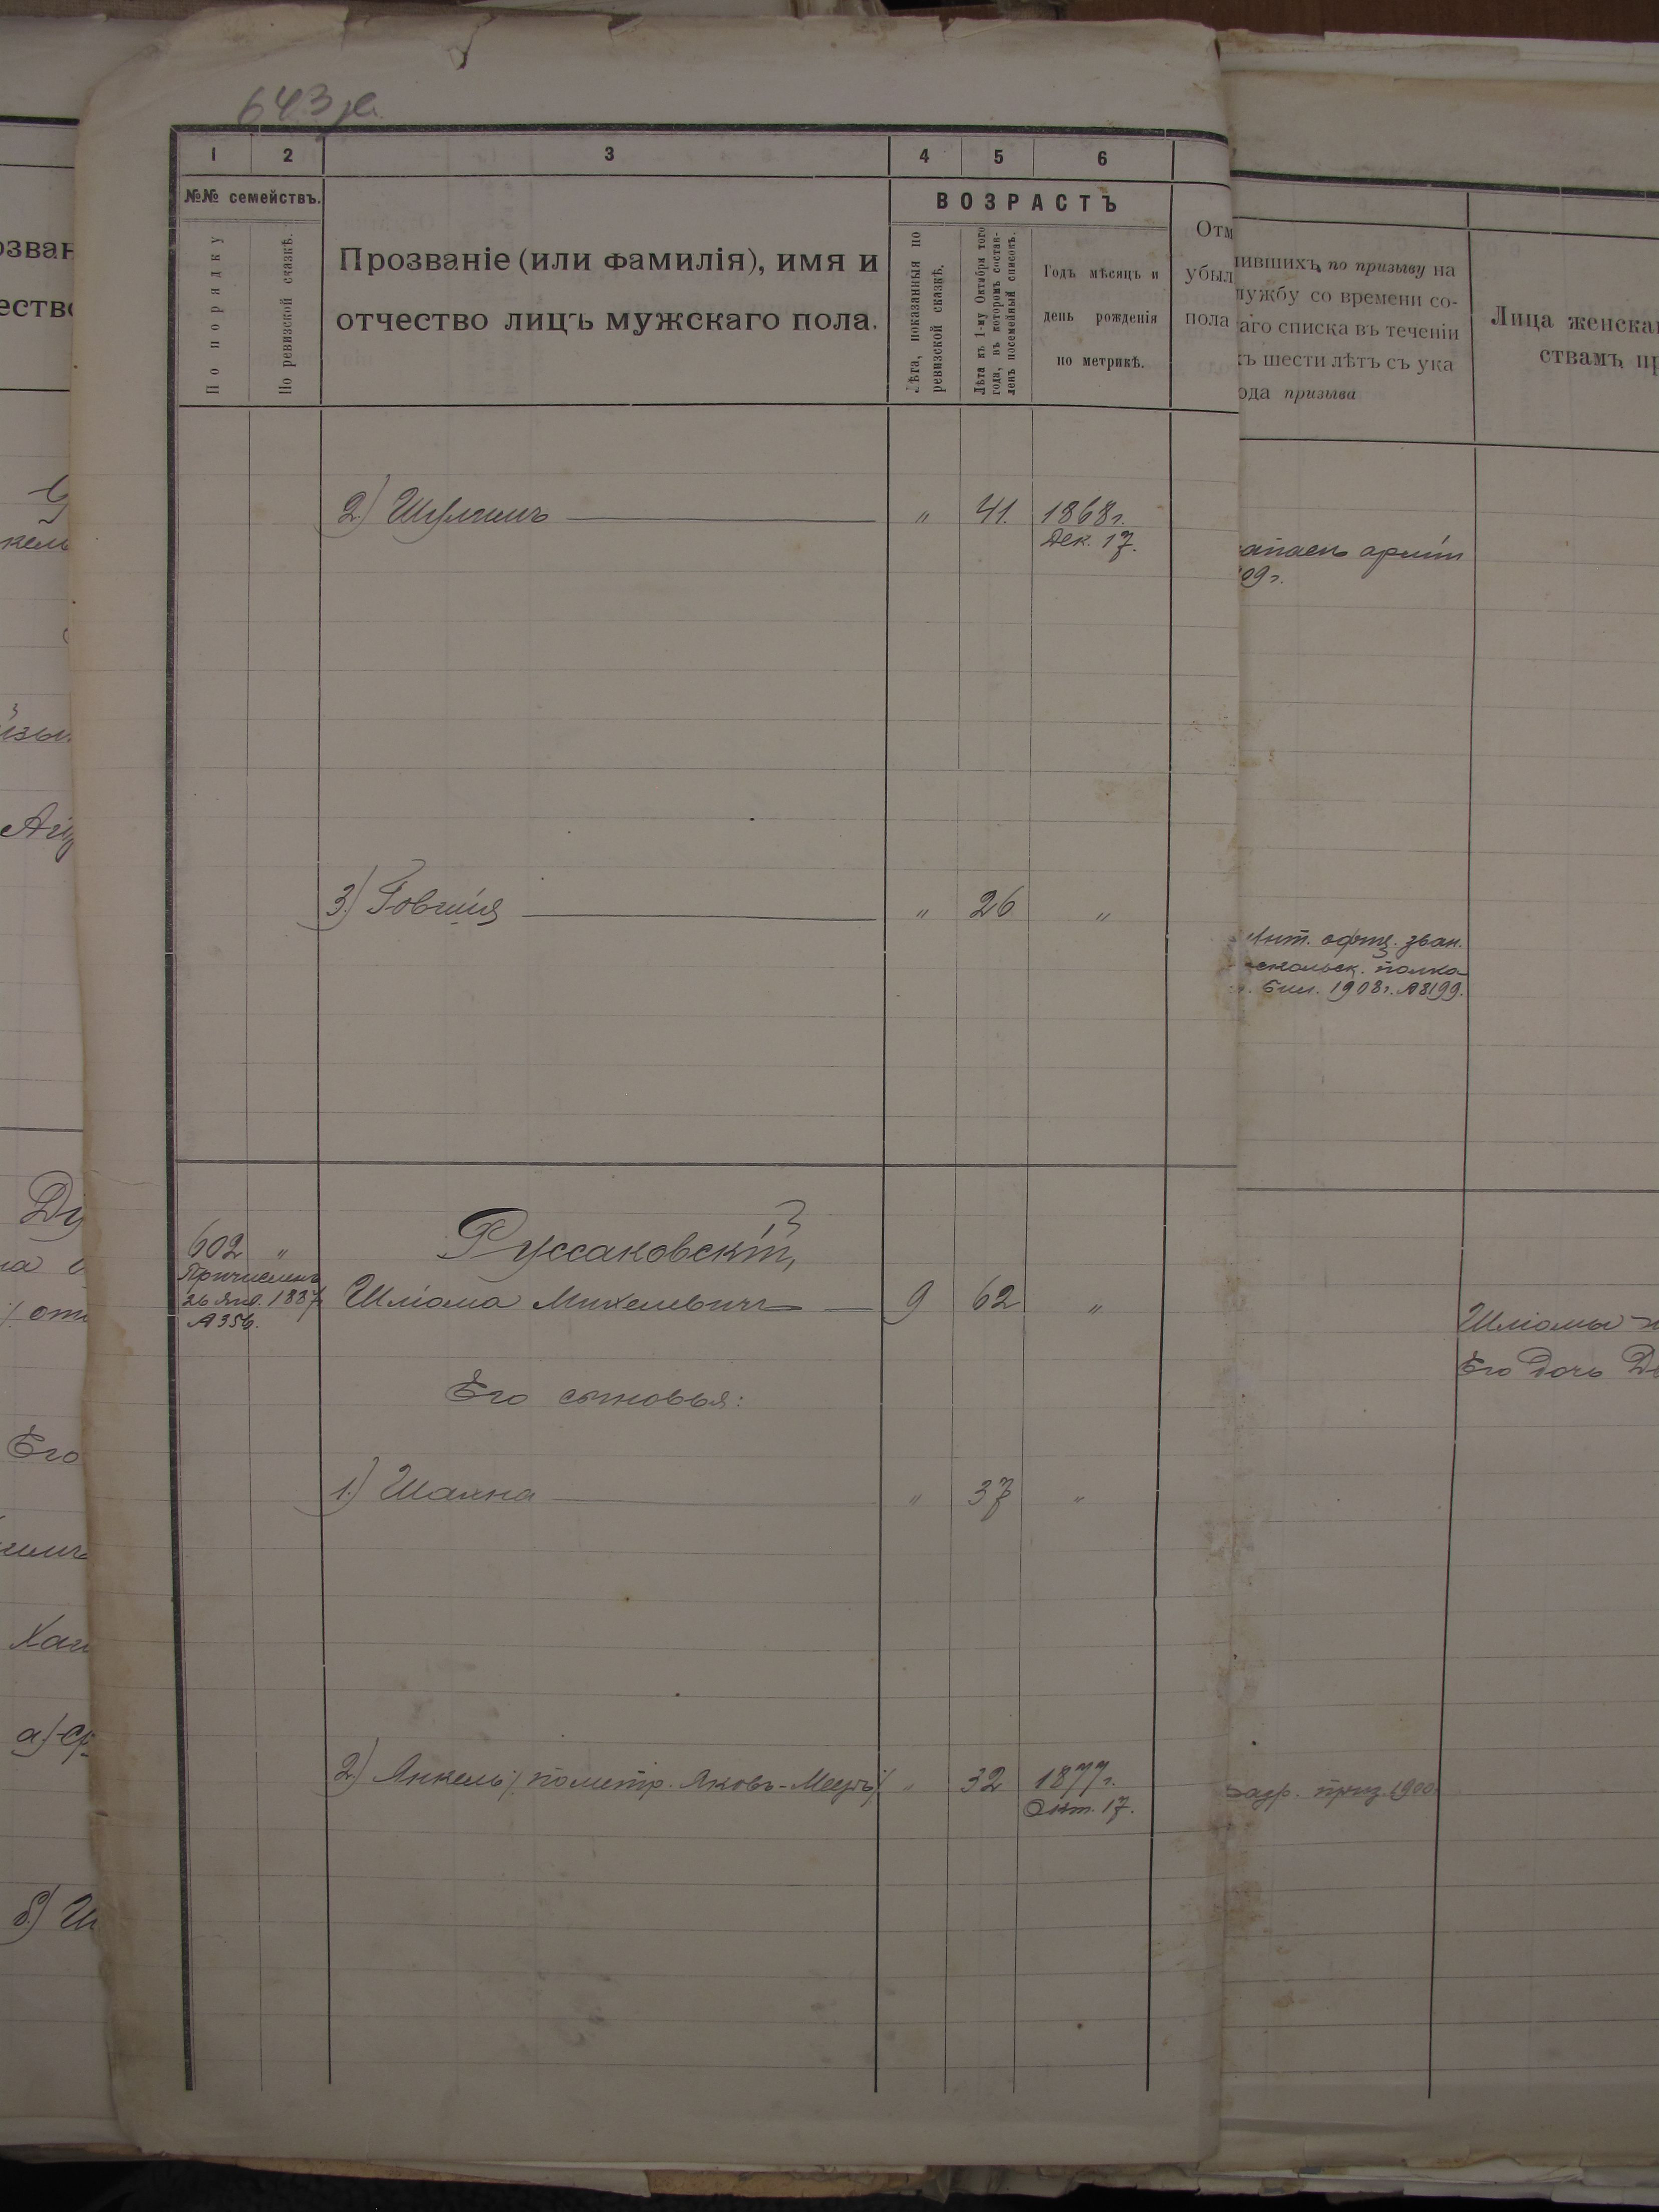 643
1 2 3 4 5 6
№№ семействъ.
По порядку
По ревизской сказкѣ.
Прозваніе (или фамилія), имя и
отчество лицъ мужскаго пола.
ВОЗРАСТЪ
Лѣта, показанныя по
ревизской сказкѣ.
Лѣта къ 1-му Октября того
года, въ которомъ состав-
ленъ посемейный списокъ.
Годъ мѣсяцъ и
день рожденія
по метрикѣ.
Отм
убыл
пола
2) „ 41. 1868 г.
Дек. 17.
3) „ 26 „
602 „ Руссаковскій,
Причисленъ
26 Янв. 1887
№ 356.
Шліома Михелевичъ — 9 62 „
Его сыновья:
1.) Шахна „ 37 „
2.) Янкель /по метр. Яковъ-Мееръ/ „ 32 1877 г.
Окт. 17.
озван
ество
кель
Ду
Его
а)
б)
пившихъ по призыву на
лужбу со времени со-
аго списка въ теченіи
хъ шести лѣтъ съ ука
ода призыва
Лица женска
ствамъ пр
09 г.
полка
бил. 1908 г. № 8199.
Шліомы
Его дочь
разр. приз. 1900